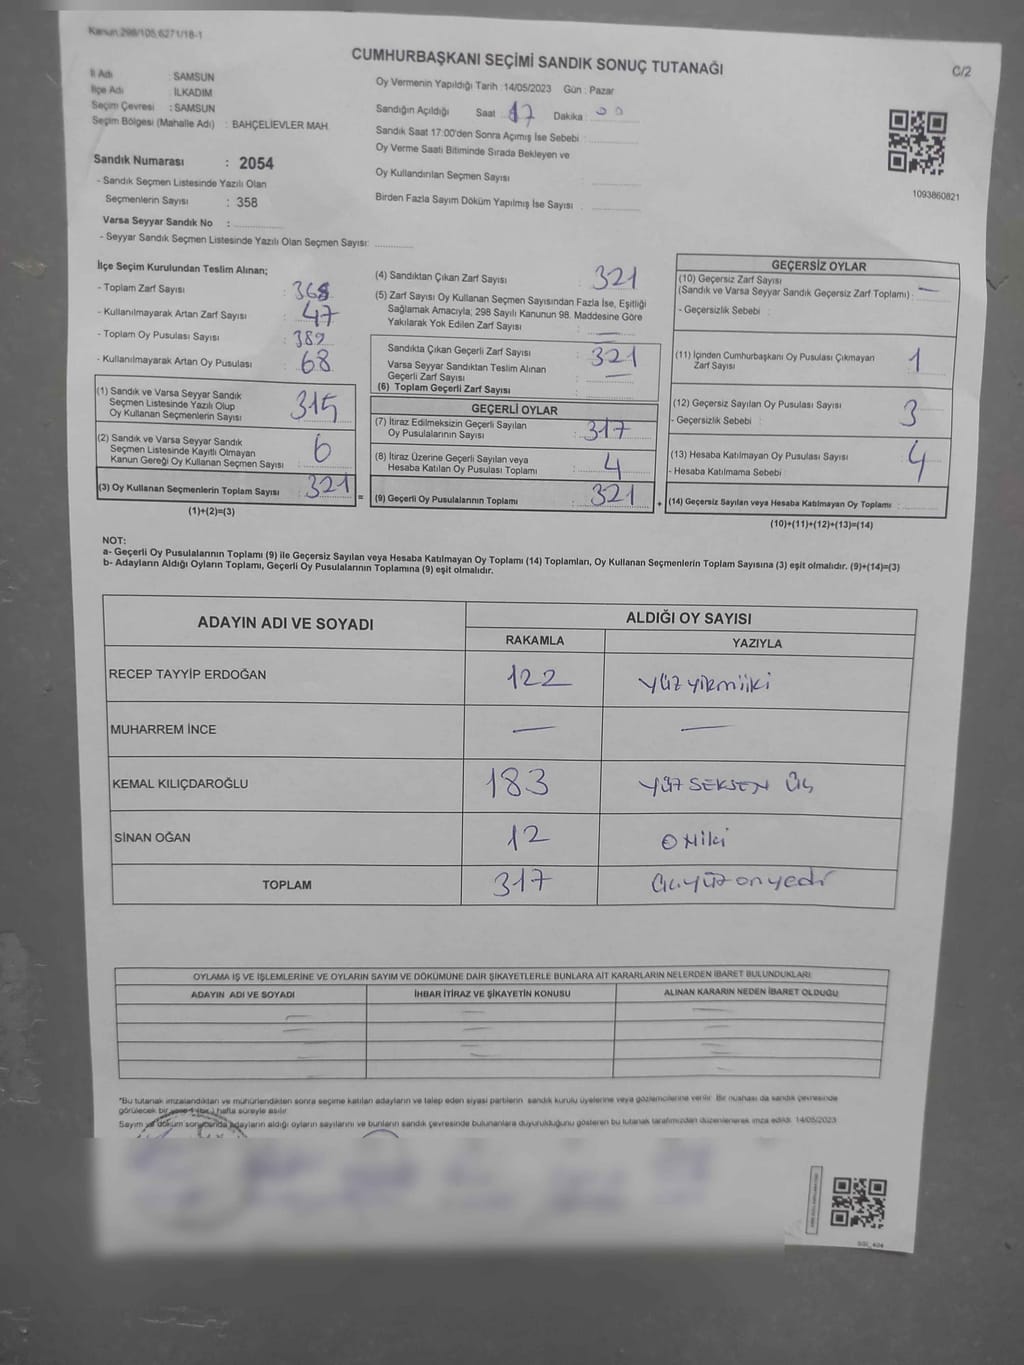 Kanun.298/105,6271/18-1
CUMHURBAŞKANI SEÇİMİ SANDIK SONUÇ TUTANAĞI
C/2
İl Adı : SAMSUN
İlçe Adı : İLKADIM
Seçim Çevresi : SAMSUN
Seçim Bölgesi (Mahalle Adı) : BAHÇELİEVLER MAH.
Sandık Numarası : 2054
- Sandık Seçmen Listesinde Yazılı Olan
Seçmenlerin Sayısı : 358
Varsa Seyyar Sandık No :
- Seyyar Sandık Seçmen Listesinde Yazılı Olan Seçmen Sayısı:
Oy Vermenin Yapıldığı Tarih :14/05/2023 Gün : Pazar
Sandığın Açıldığı Saat : 17 Dakika : 00
Sandık Saat 17:00'den Sonra Açımış İse Sebebi :
Oy Verme Saati Bitiminde Sırada Bekleyen ve
Oy Kullandırılan Seçmen Sayısı :
Birden Fazla Sayım Döküm Yapılmış İse Sayısı :
1093860821
İlçe Seçim Kurulundan Teslim Alınan;
- Toplam Zarf Sayısı : 368
- Kullanılmayarak Artan Zarf Sayısı : 47
- Toplam Oy Pusulası Sayısı : 382
- Kullanılmayarak Artan Oy Pusulası : 68
(1) Sandık ve Varsa Seyyar Sandık
Seçmen Listesinde Yazılı Olup
Oy Kullanan Seçmenlerin Sayısı : 315
(2) Sandık ve Varsa Seyyar Sandık
Seçmen Listesinde Kayıtlı Olmayan
Kanun Gereği Oy Kullanan Seçmen Sayısı : 6
(3) Oy Kullanan Seçmenlerin Toplam Sayısı : 321
(1)+(2)=(3)
=
(4) Sandıktan Çıkan Zarf Sayısı : 321
(5) Zarf Sayısı Oy Kullanan Seçmen Sayısından Fazla İse, Eşitliği
Sağlamak Amacıyla; 298 Sayılı Kanunun 98. Maddesine Göre
Yakılarak Yok Edilen Zarf Sayısı : —
Sandıkta Çıkan Geçerli Zarf Sayısı : 321
Varsa Seyyar Sandıktan Teslim Alınan
Geçerli Zarf Sayısı : —
(6) Toplam Geçerli Zarf Sayısı :
GEÇERLİ OYLAR
(7) İtiraz Edilmeksizin Geçerli Sayılan
Oy Pusulalarının Sayısı : 317
(8) İtiraz Üzerine Geçerli Sayılan veya
Hesaba Katılan Oy Pusulası Toplamı : 4
(9) Geçerli Oy Pusulalarının Toplamı : 321
+
GEÇERSİZ OYLAR
(10) Geçersiz Zarf Sayısı
(Sandık ve Varsa Seyyar Sandık Geçersiz Zarf Toplamı) : —
- Geçersizlik Sebebi :
(11) İçinden Cumhurbaşkanı Oy Pusulası Çıkmayan
Zarf Sayısı : 1
(12) Geçersiz Sayılan Oy Pusulası Sayısı : 3
- Geçersizlik Sebebi :
(13) Hesaba Katılmayan Oy Pusulası Sayısı : 4
- Hesaba Katılmama Sebebi :
(14) Geçersiz Sayılan veya Hesaba Katılmayan Oy Toplamı :
(10)+(11)+(12)+(13)=(14)
NOT:
a- Geçerli Oy Pusulalarının Toplamı (9) ile Geçersiz Sayılan veya Hesaba Katılmayan Oy Toplamı (14) Toplamları, Oy Kullanan Seçmenlerin Toplam Sayısına (3) eşit olmalıdır. (9)+(14)=(3)
b- Adayların Aldığı Oyların Toplamı, Geçerli Oy Pusulalarının Toplamına (9) eşit olmalıdır.
ADAYIN ADI VE SOYADI
ALDIĞI OY SAYISI
RAKAMLA YAZIYLA
RECEP TAYYİP ERDOĞAN 122 yüz yirmiiki
MUHARREM İNCE — —
KEMAL KILIÇDAROĞLU 183 yüz SEKSEN üç
SİNAN OĞAN 12 ONiki
TOPLAM 317 üçyüz onyedi
OYLAMA İŞ VE İŞLEMLERİNE VE OYLARIN SAYIM VE DÖKÜMÜNE DAİR ŞİKAYETLERLE BUNLARA AİT KARARLARIN NELERDEN İBARET BULUNDUKLARI
ADAYIN ADI VE SOYADI İHBAR İTİRAZ VE ŞİKAYETİN KONUSU ALINAN KARARIN NEDEN İBARET OLDUĞU
*Bu tutanak imzalandıktan ve mühürlendikten sonra seçime katılan adayların ve talep eden siyasi partilerin sandık kurulu üyelerine veya gözlemcilerine verilir. Bir nüshası da sandık çevresinde
görülecek bir yere 1 (bir) hafta süreyle asılır.
Sayım ve döküm sonucunda adayların aldığı oyların sayılarını ve bunların sandık çevresinde bulunanlara duyurulduğunu gösteren bu tutanak tarafımızdan düzenlenerek imza edildi. 14/05/2023